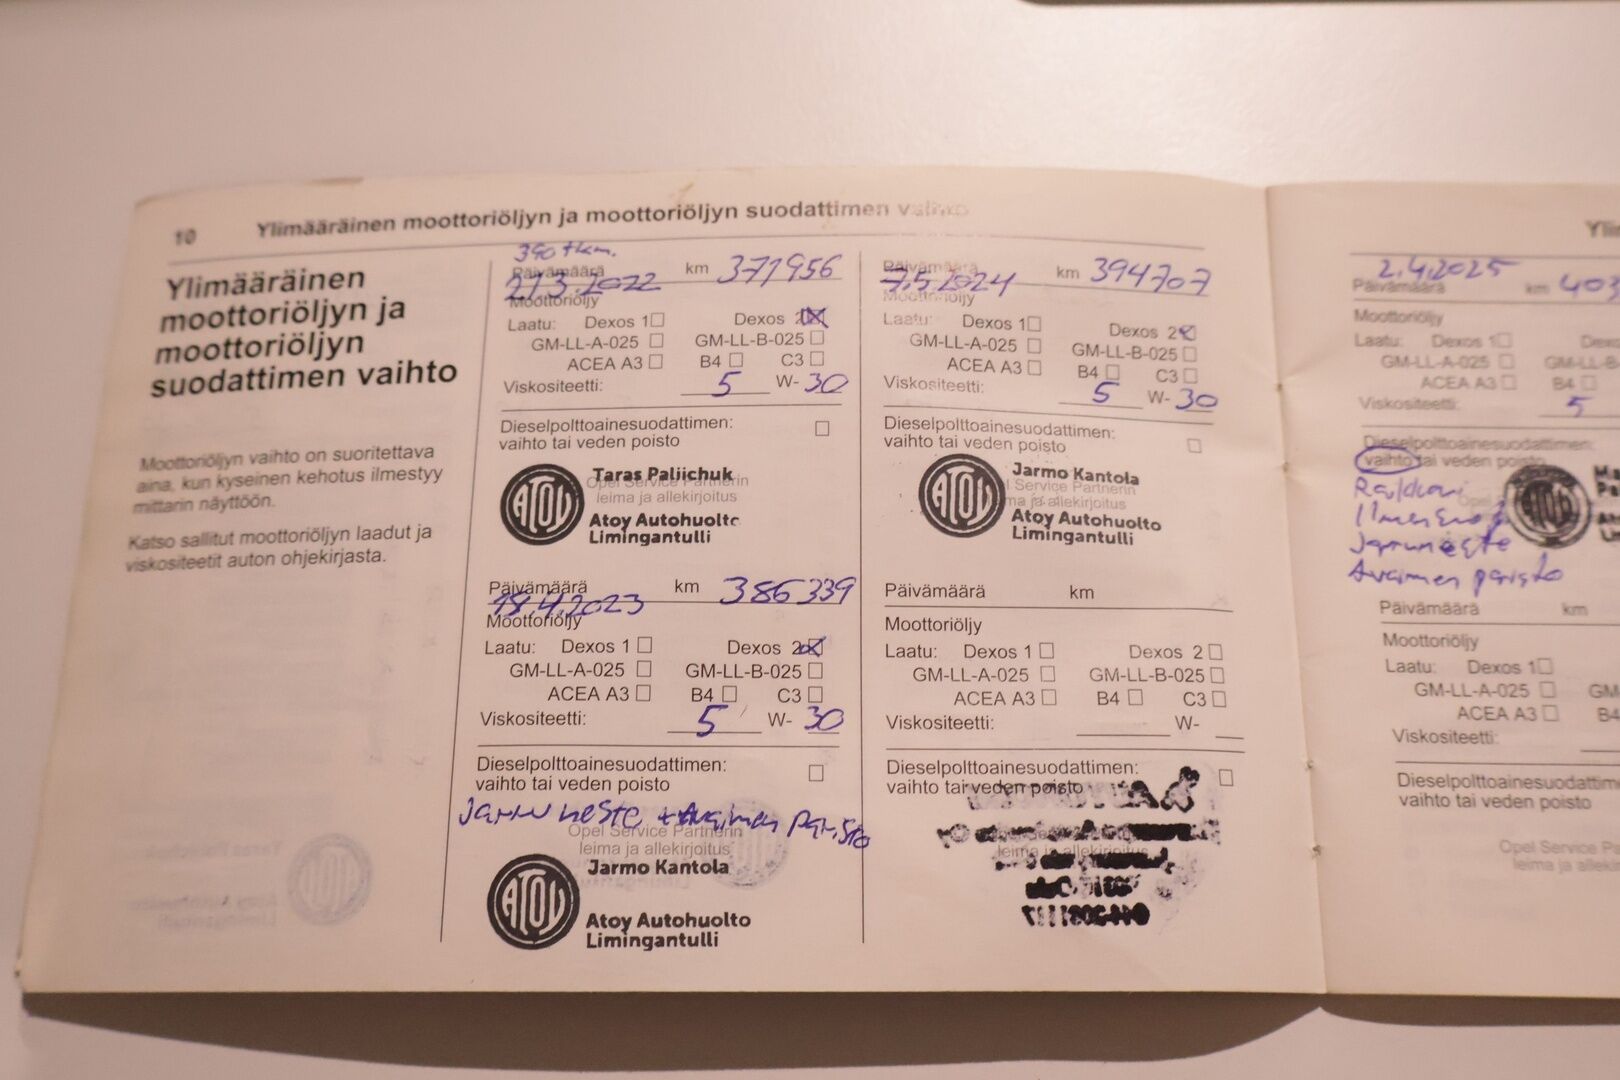 10 Ylimääräinen moottoriöljyn ja moottoriöljyn suodattimen vaihto
Ylimääräinen
moottoriöljyn ja
moottoriöljyn
suodattimen vaihto
Moottoriöljyn vaihto on suoritettava
aina, kun kyseinen kehotus ilmestyy
mittarin näyttöön.
Katso sallitut moottoriöljyn laadut ja
viskositeetit auton ohjekirjasta.
390 tkm.
Päivämäärä km 371956
21.3.2022
Moottoriöljy
Laatu: Dexos 1 Dexos 2
GM-LL-A-025 GM-LL-B-025
ACEA A3 B4 C3
Viskositeetti: 5 W- 30
Dieselpolttoainesuodattimen:
vaihto tai veden poisto
Taras Paliichuk
Opel Service Partnerin
leima ja allekirjoitus
ATOY
Atoy Autohuolto
Limingantulli
Päivämäärä km 386339
18.4.2023
Moottoriöljy
Laatu: Dexos 1 Dexos 2
GM-LL-A-025 GM-LL-B-025
ACEA A3 B4 C3
Viskositeetti: 5 W- 30
Dieselpolttoainesuodattimen:
vaihto tai veden poisto
Jarru neste + Avaimen paristo
Opel Service Partnerin
leima ja allekirjoitus
Jarmo Kantola
ATOY
Atoy Autohuolto
Limingantulli
Päivämäärä km 394707
7.5.2024
Moottoriöljy
Laatu: Dexos 1 Dexos 2
GM-LL-A-025 GM-LL-B-025
ACEA A3 B4 C3
Viskositeetti: 5 W- 30
Dieselpolttoainesuodattimen:
vaihto tai veden poisto
Jarmo Kantola
l Service Partnerin
ma ja allekirjoitus
ATOY
Atoy Autohuolto
Limingantulli
Päivämäärä km
Moottoriöljy
Laatu: Dexos 1 Dexos 2
GM-LL-A-025 GM-LL-B-025
ACEA A3 B4 C3
Viskositeetti: W-
Dieselpolttoainesuodattimen:
vaihto tai veden poisto
leima ja allekirjoitus
Yli
2.4.2025
Päivämäärä km 403
Moottoriöljy
Laatu: Dexos 1 Dexo
GM-LL-A-025 GM-LL-B
ACEA A3 B4
Viskositeetti: 5
Dieselpolttoainesuodattimen:
vaihto tai veden poisto
ATOY
Jarruneste
Avaimen paristo
Päivämäärä km
Moottoriöljy
Laatu: Dexos 1
GM-LL-A-025 GM
ACEA A3 B4
Viskositeetti:
Dieselpolttoainesuodattim
vaihto tai veden poisto
Opel Service Pa
leima ja allekir